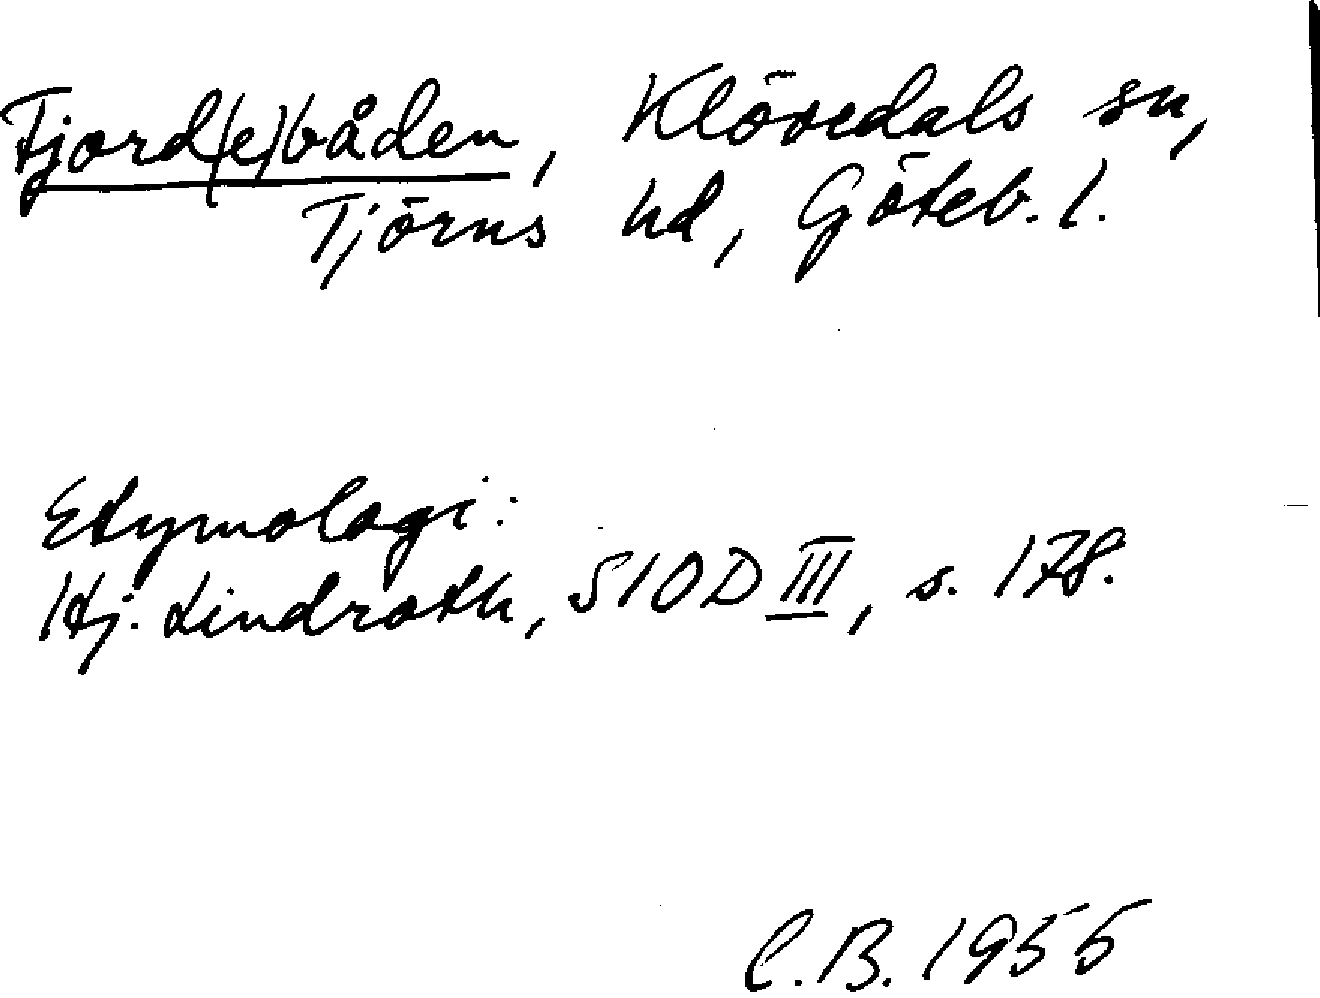 Fjord(e)båden, Klövedals sn,
Tjörns hd, Göteb. l.
Etymologi:
Hj. Lindroth, SIOD III, s. 178.
C.B. 1955